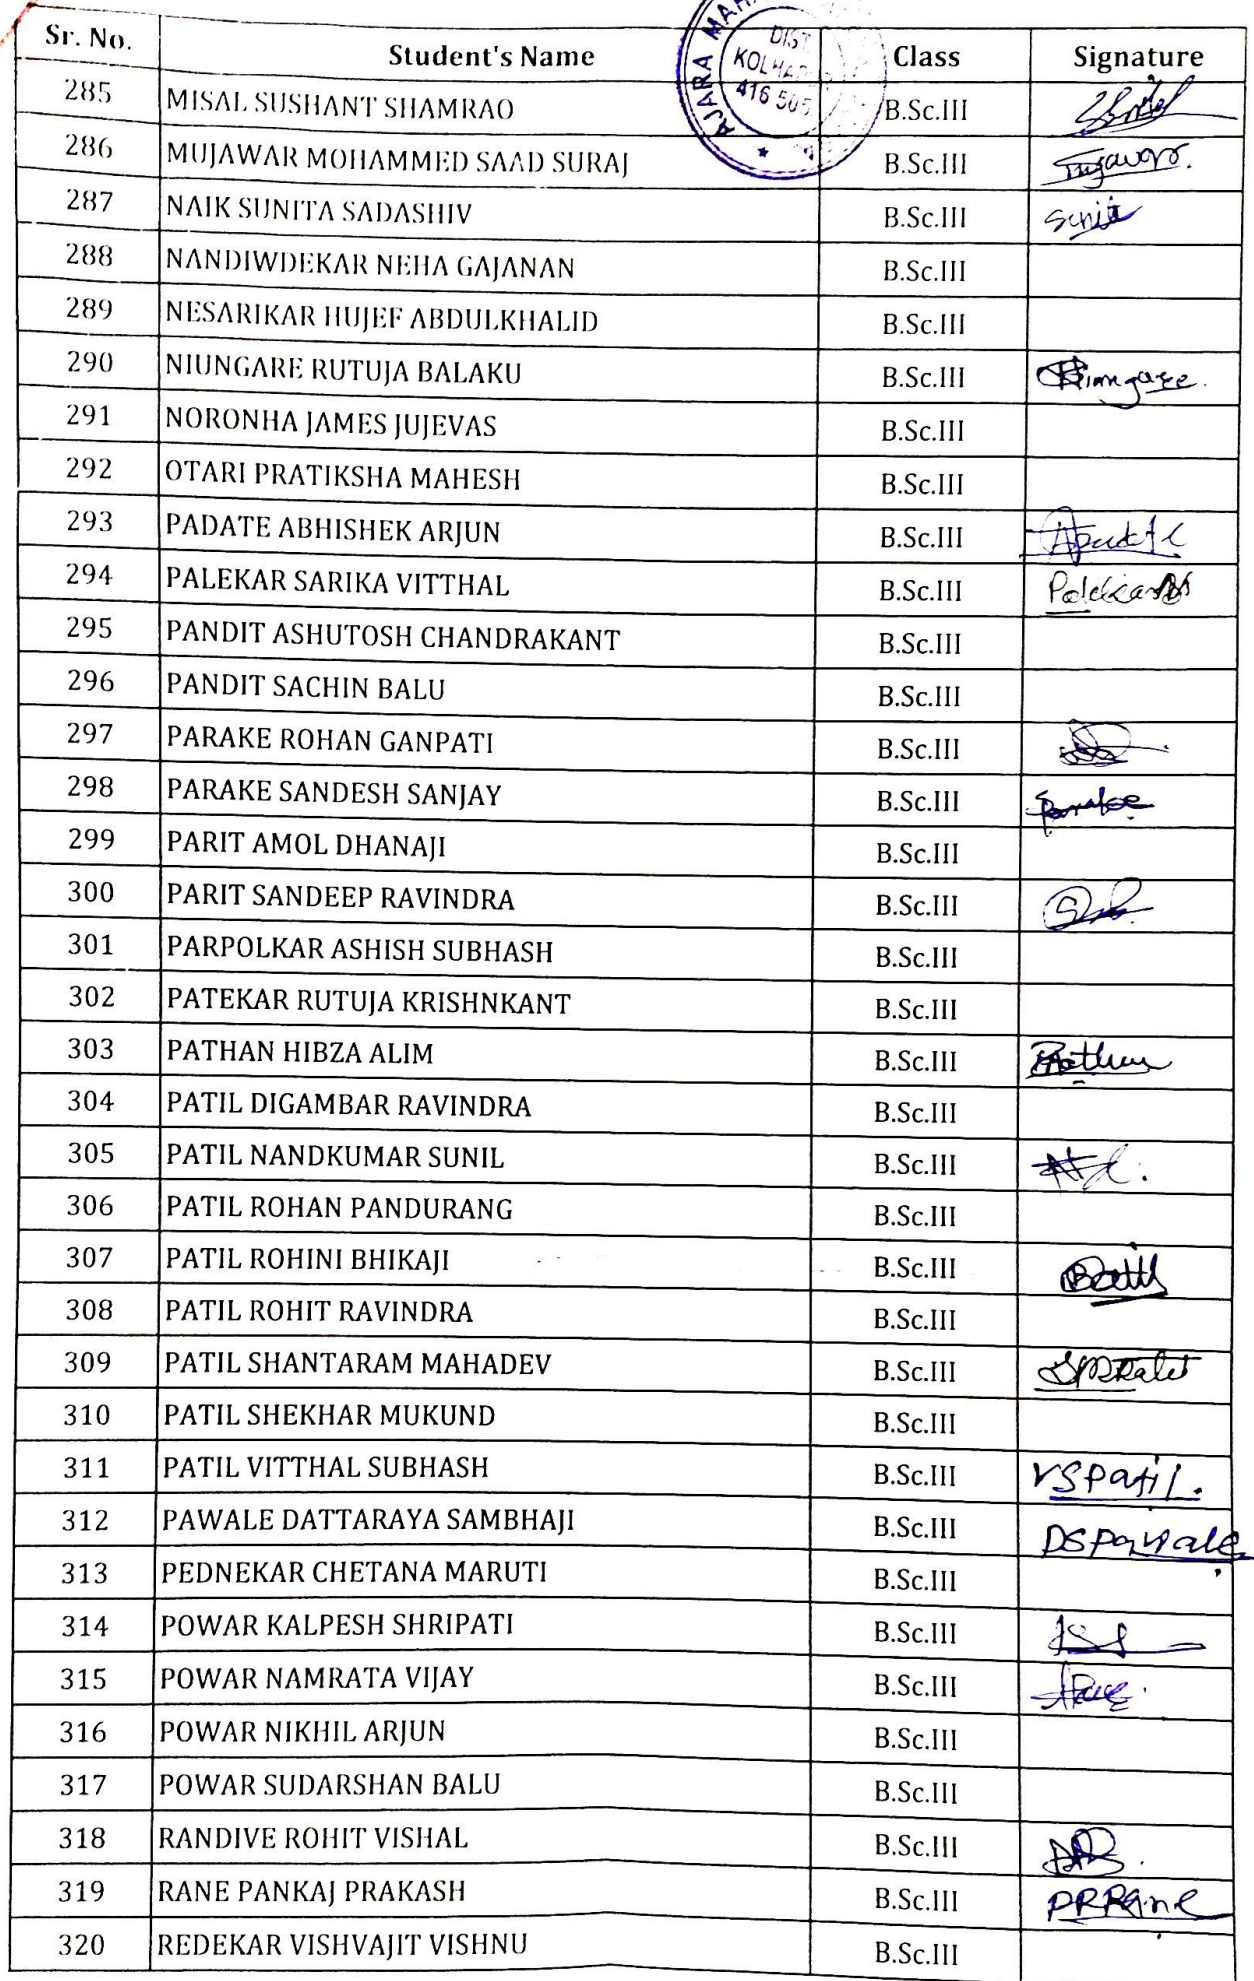 AJARA MAH
DIST
KOLHA
416 505
Sr. No. Student's Name Class Signature
285 MISAL SUSHANT SHAMRAO B.Sc.III
286 MUJAWAR MOHAMMED SAAD SURAJ B.Sc.III
287 NAIK SUNITA SADASHIV B.Sc.III
288 NANDIWDEKAR NEHA GAJANAN B.Sc.III
289 NESARIKAR HUJEF ABDULKHALID B.Sc.III
290 NIUNGARE RUTUJA BALAKU B.Sc.III
291 NORONHA JAMES JUJEVAS B.Sc.III
292 OTARI PRATIKSHA MAHESH B.Sc.III
293 PADATE ABHISHEK ARJUN B.Sc.III
294 PALEKAR SARIKA VITTHAL B.Sc.III
295 PANDIT ASHUTOSH CHANDRAKANT B.Sc.III
296 PANDIT SACHIN BALU B.Sc.III
297 PARAKE ROHAN GANPATI B.Sc.III
298 PARAKE SANDESH SANJAY B.Sc.III
299 PARIT AMOL DHANAJI B.Sc.III
300 PARIT SANDEEP RAVINDRA B.Sc.III
301 PARPOLKAR ASHISH SUBHASH B.Sc.III
302 PATEKAR RUTUJA KRISHNKANT B.Sc.III
303 PATHAN HIBZA ALIM B.Sc.III
304 PATIL DIGAMBAR RAVINDRA B.Sc.III
305 PATIL NANDKUMAR SUNIL B.Sc.III
306 PATIL ROHAN PANDURANG B.Sc.III
307 PATIL ROHINI BHIKAJI B.Sc.III
308 PATIL ROHIT RAVINDRA B.Sc.III
309 PATIL SHANTARAM MAHADEV B.Sc.III
310 PATIL SHEKHAR MUKUND B.Sc.III
311 PATIL VITTHAL SUBHASH B.Sc.III VSPatil.
312 PAWALE DATTARAYA SAMBHAJI B.Sc.III DSPawale
313 PEDNEKAR CHETANA MARUTI B.Sc.III
314 POWAR KALPESH SHRIPATI B.Sc.III
315 POWAR NAMRATA VIJAY B.Sc.III
316 POWAR NIKHIL ARJUN B.Sc.III
317 POWAR SUDARSHAN BALU B.Sc.III
318 RANDIVE ROHIT VISHAL B.Sc.III
319 RANE PANKAJ PRAKASH B.Sc.III
320 REDEKAR VISHVAJIT VISHNU B.Sc.III